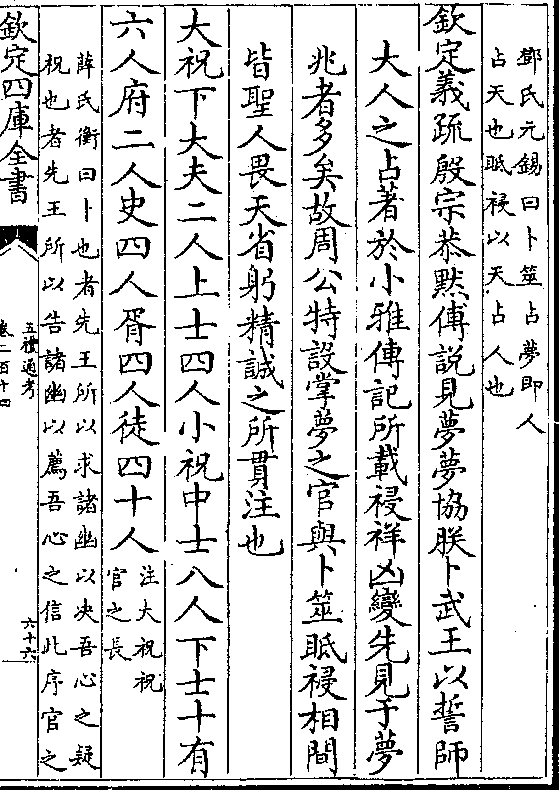 鄧氏元錫曰卜筮占夢即人
占天也眡祲以天占人也
欽定義疏殷宗恭默傳説見夢夢協朕卜武王以誓師
大人之占著於小雅傳記所載祲祥凶變先見于夢
兆者多矣故周公特設掌夢之官與卜筮眡祲相間
皆聖人畏天省躬精誠之所貫注也
大祝下大夫二人上士四人小祝中士八人下士十有
六人府二人史四人胥四人徒四十人注大祝祝
官之長
薛氏衡曰卜也者先王所以求諸幽以决吾心之疑
祝也者先王所以告諸幽以薦吾心之信此序官之
欽定四庫全書
五禮通考
卷二百十四
六十六